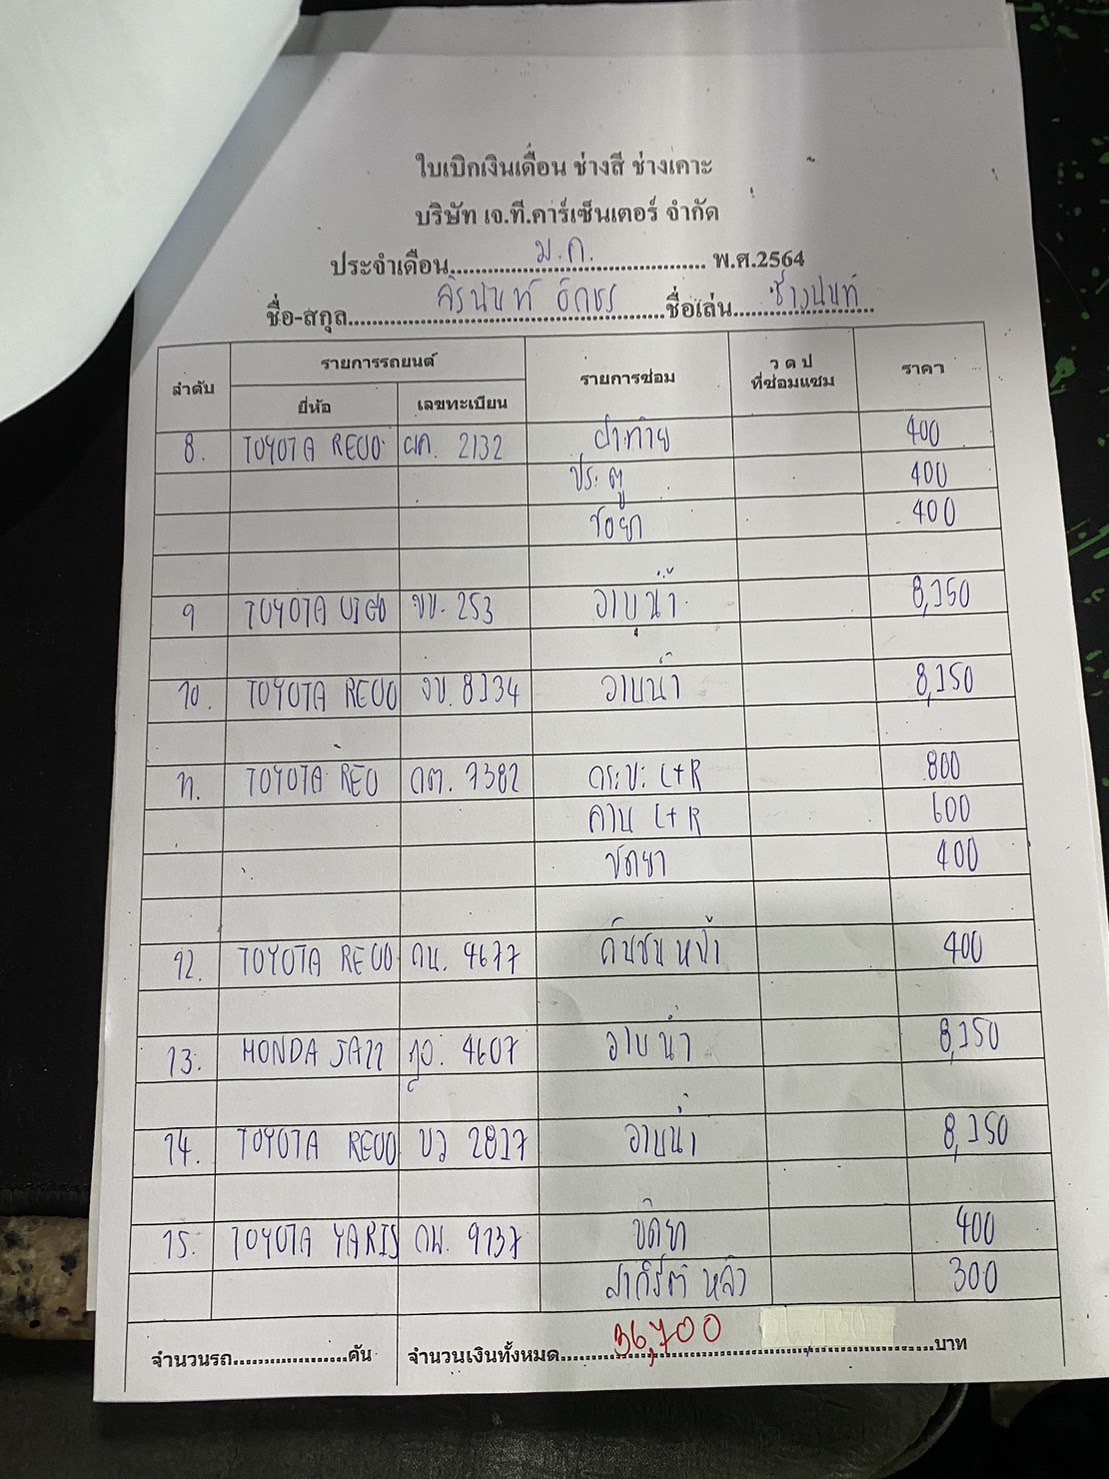 ใบเบิกเงินเดือน ช่างสี ช่างเคาะ
บริษัท เจ.ที.คาร์เซ็นเตอร์ จำกัด
ประจำเดือน ม.ค. พ.ศ.2564
ชื่อ-สกุล ศิรนันท์ อักษร ชื่อเล่น ช่างนันท์
ลำดับ รายการรถยนต์ รายการซ่อม ว ด ป ที่ซ่อมแซม ราคา
ยี่ห้อ เลขทะเบียน
8. TOYOTA REVO ผค. 2132 ฝาท้าย 400
ประตู 400
400
9 TOYOTA VIGO ขข. 253 อาบน้ำ 8,150
10. TOYOTA REVO งข. 8134 อาบน้ำ 8,150
11. TOYOTA REO กต. 7382 กระบะ L+R 800
คาน L+R 600
ขัดยา 400
12. TOYOTA REVO กน. 4677 กันชนหน้า 400
13. HONDA JAZZ ฎอ. 4607 อาบน้ำ 8,150
14. TOYOTA REVO บว 2817 อาบน้ำ 8,150
15. TOYOTA YARIS กพ. 9737 ขัดยา 400
หลัง 300
จำนวนรถ คัน จำนวนเงินทั้งหมด 36,700 บาท